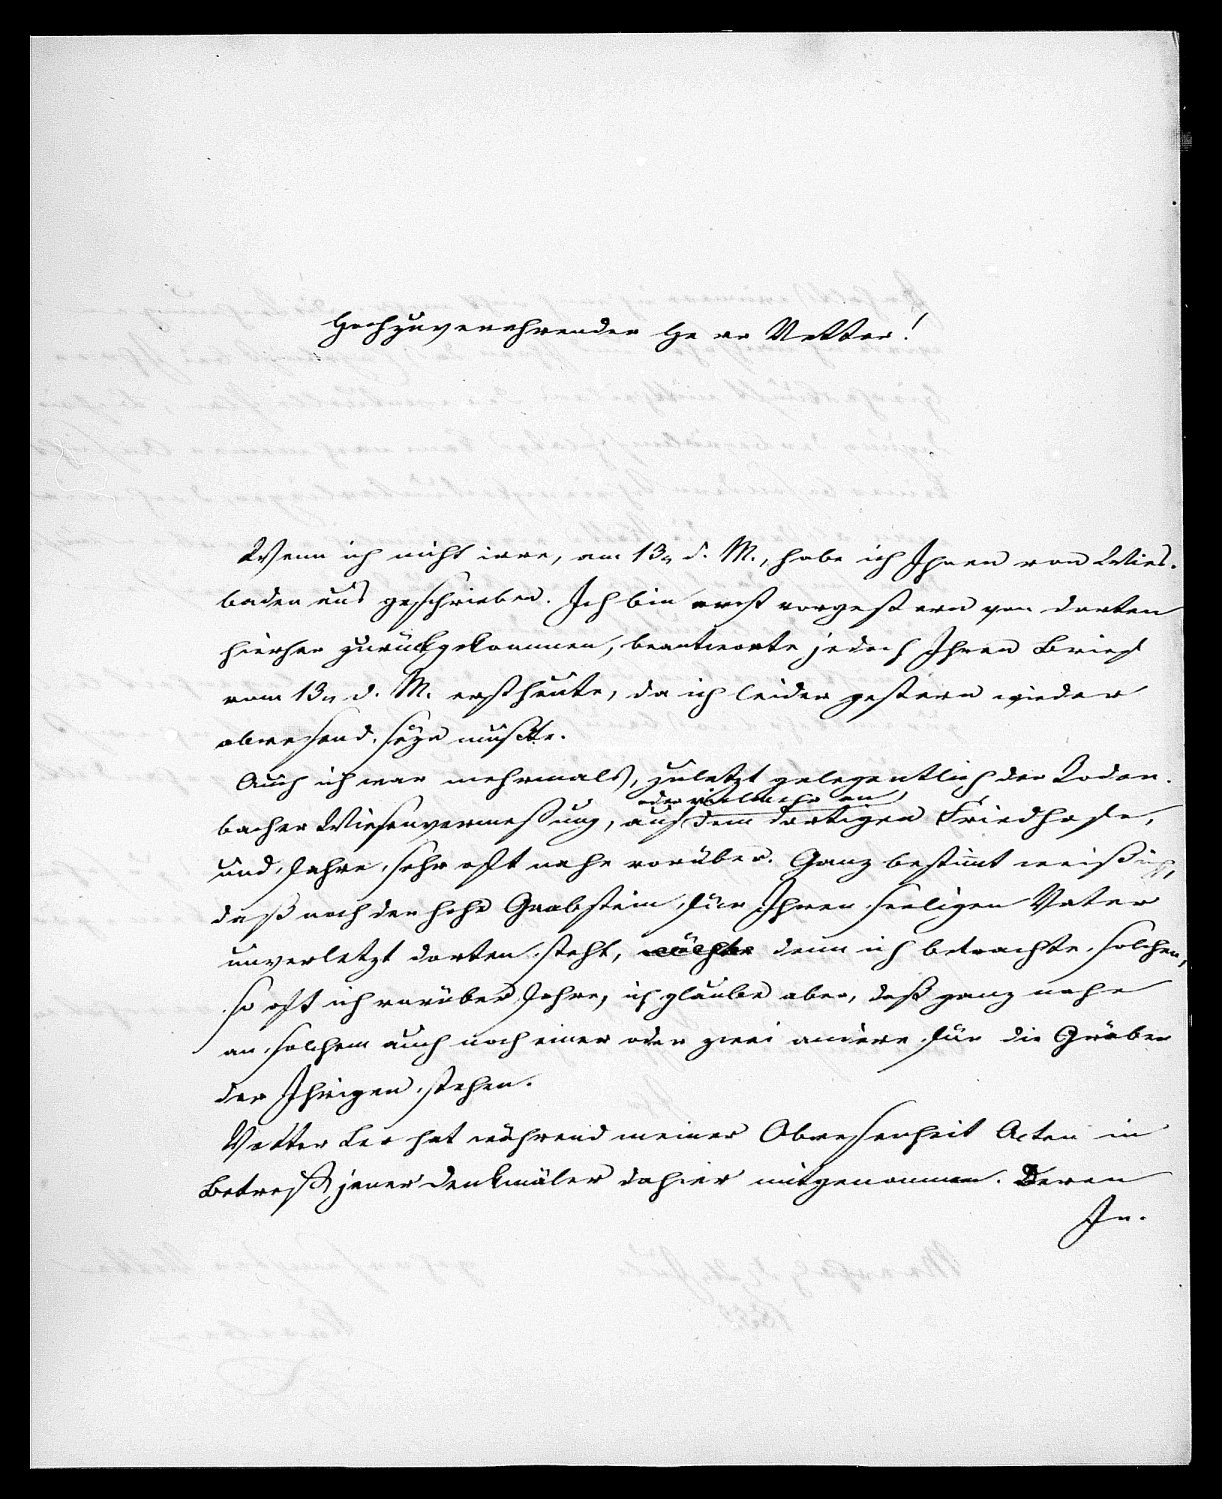 Hochzuverehrender Herr Vetter!
Wenn ich nicht irre, am 13n d. M., habe ich Ihnen von Wies-
baden aus geschrieben. Ich bin erst vorgestern von dorten
hierher zurückgekommen, beantworte jedoch Ihren Brief
vom 13n d. M. erst heute, da ich leider gestern wieder
abwesend seyn mußte.
Auch ich war mehrmals, zuletzt gelegentlich der Roden-
bacher Wiesenvermessung,
oder vielmehr an
auf dem dortigen Friedhofe,
und fahre sehr oft nahe vorüber. Ganz bestimt weiß ich,
daß noch der hohe Grabstein für Ihren seeligen Vater
unverletzt dorten steht, denn ich betrachte solchen,
so oft ich vorüber fahre, ich glaube aber, daß ganz nahe
an solchem auch noch einer oder zwei andere für die Gräber
der Ihrigen stehen.
Vetter Leo hat während meiner Abwesenheit Acten in
Betreff jener Denkmäler dahier mitgenommen. Deren
In-